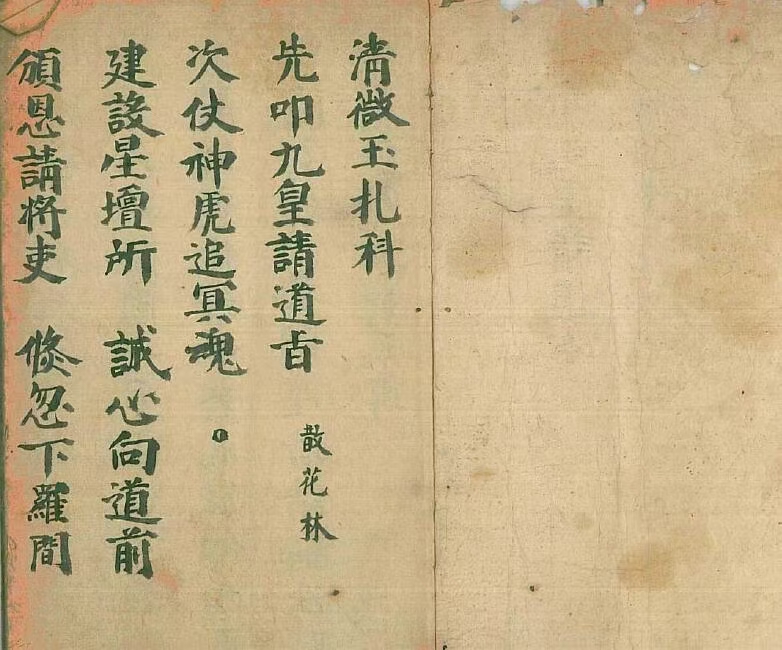 清微玉扎科
先叩九皇請道旨
散花林
次仗神虎追冥魂
建設星壇所 誠心向道前
頒恩請將吏 倏忽下羅間